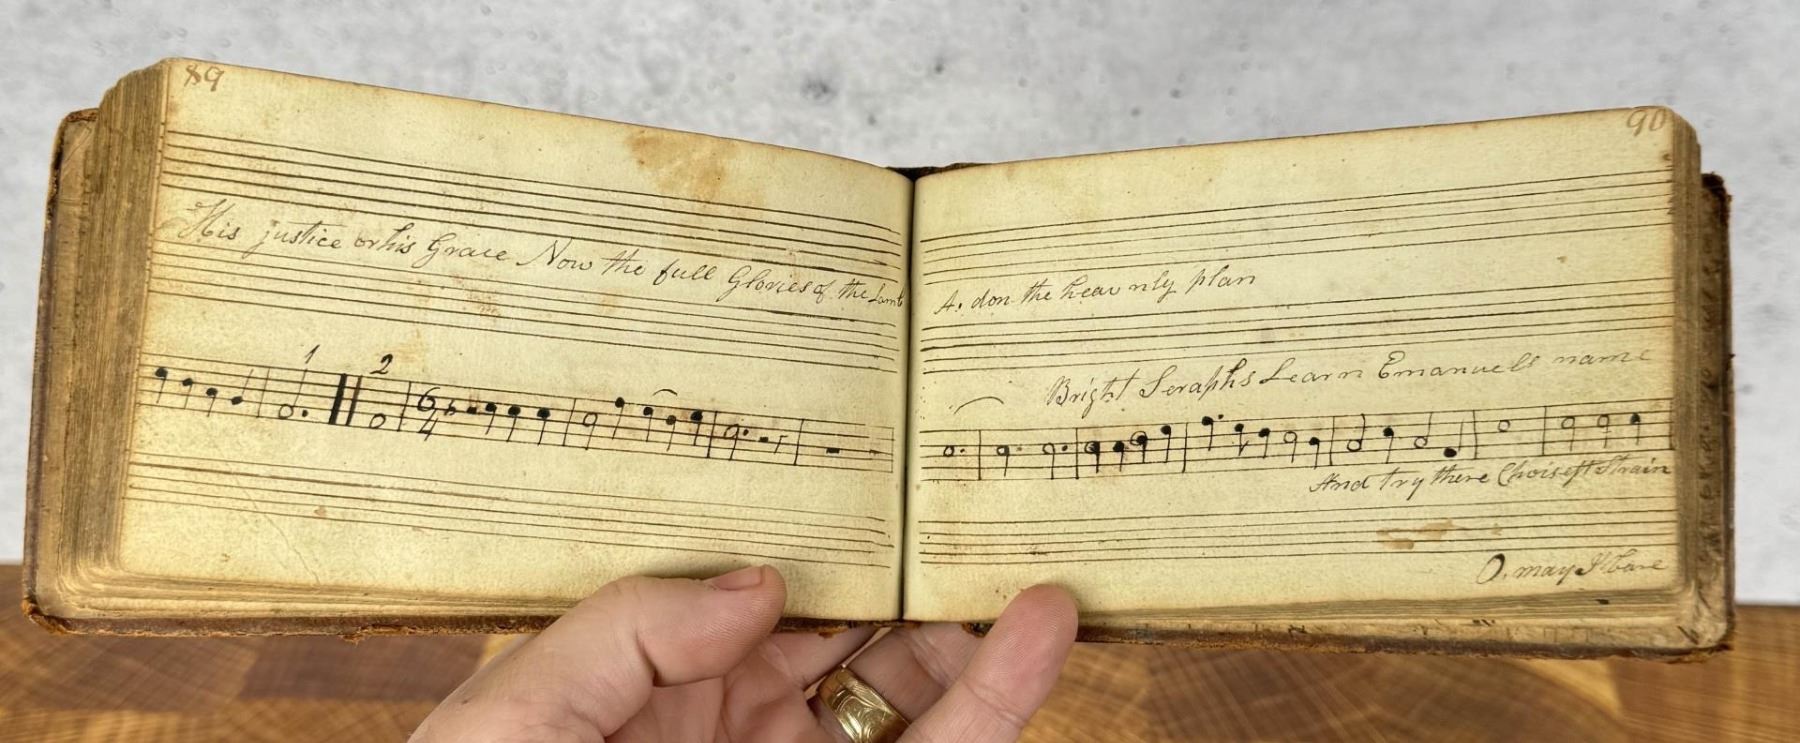 89
His justice or his Grace Now the full Glories of the Lamb
1
2
6
4
90
A. don the heav nly plan
Bright Seraphs Learn Emanuels name
And try there Choisest Strain
O. may I bare